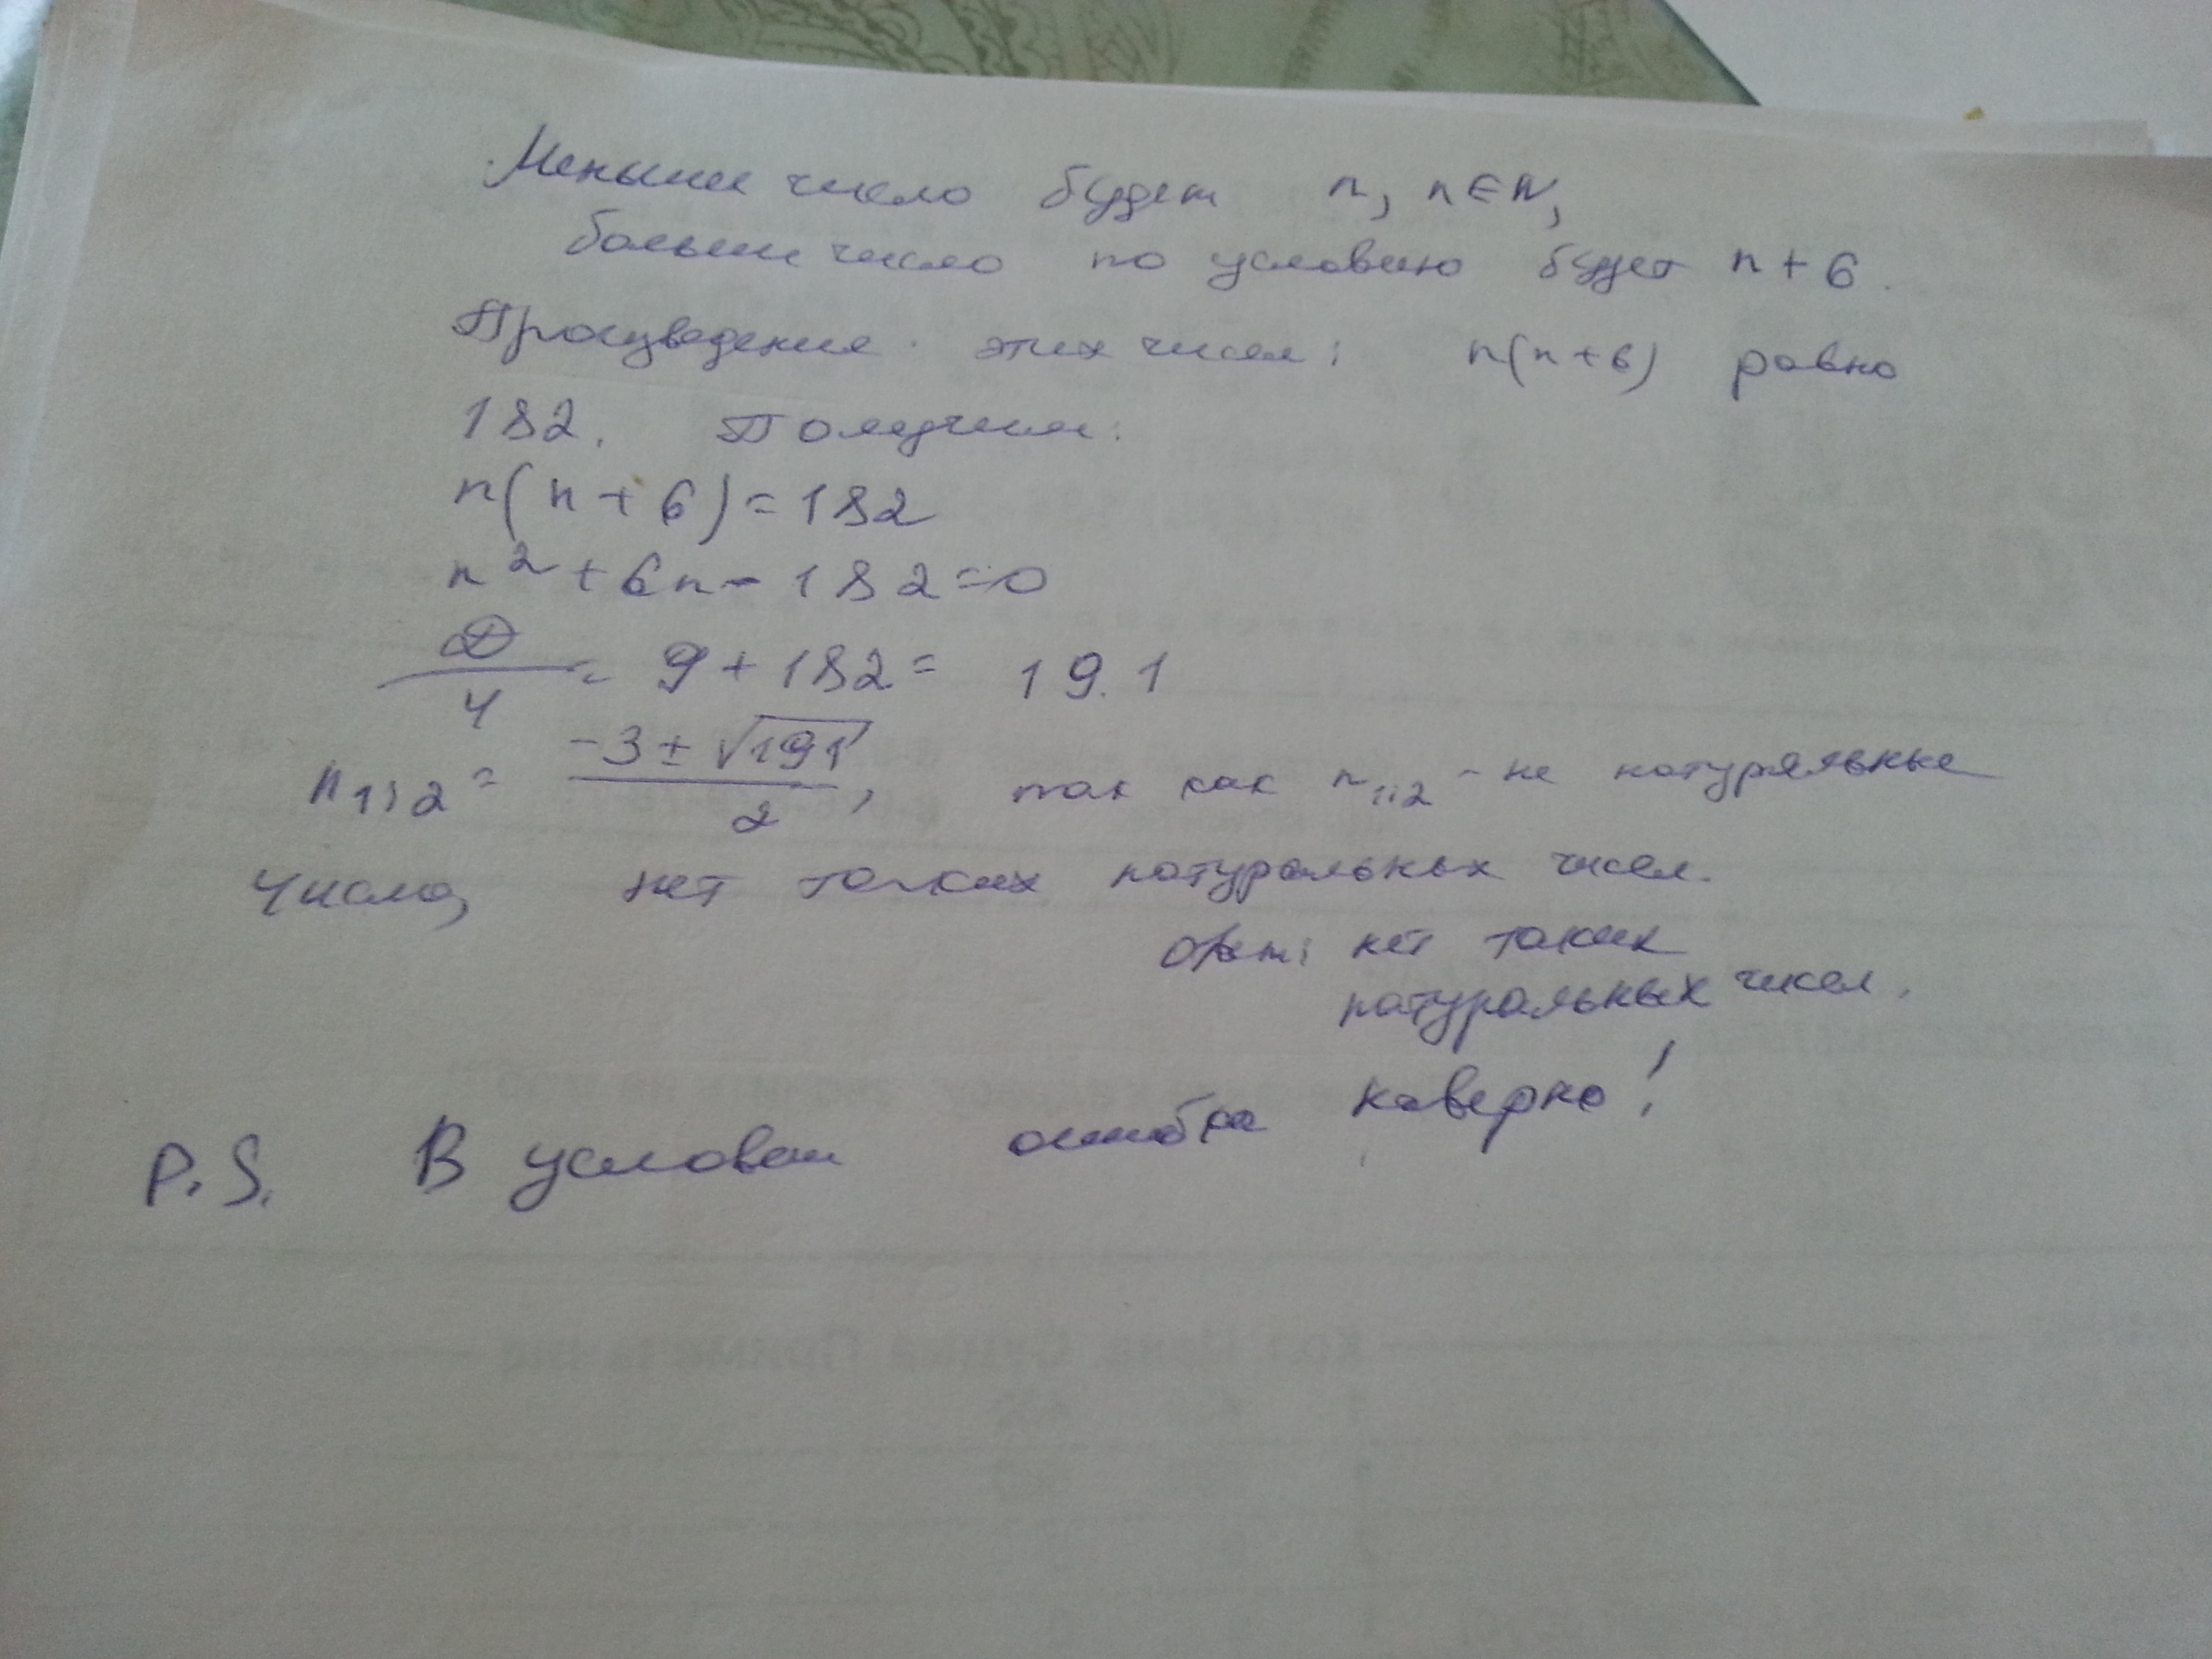 Меньшее число будет n, n∈N,
большее число по условию будет n + 6.
Произведение этих чисел: n(n+6) равно
182. Получим:
n(n+6)=182
n²+6n-182=0
D/4 = 9+182= 191
n₁,₂ = (-3±√191)/2, так как n₁,₂ - не натуральные
числа, нет таких натуральных чисел.
Ответ: нет таких
натуральных чисел.
P.S. В условии ошибка наверно!